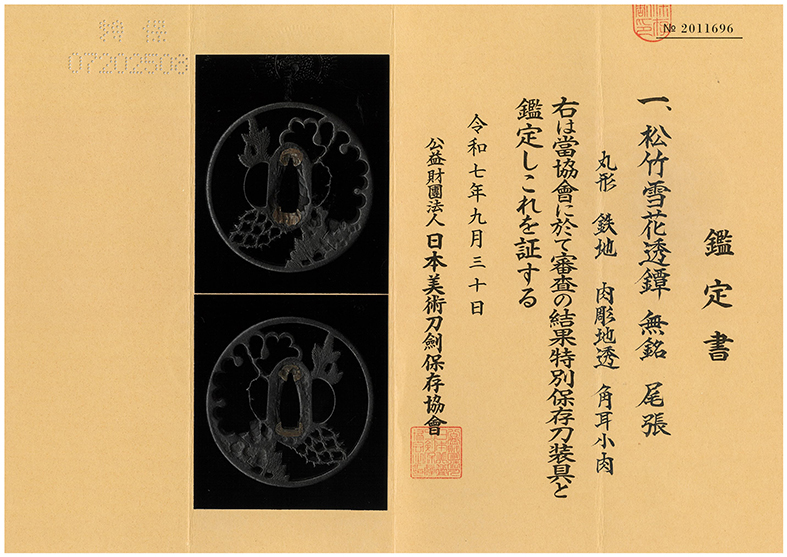 № 2011696
鑑定書
一、松竹雪花透鐔 無銘 尾張
丸形 鉄地 肉彫地透 角耳小肉
右は當協會に於て審査の結果特別保存刀装具と
鑑定しこれを証する
令和七年九月三十日
公益財團法人 日本美術刀劍保存協會
特保
07202508